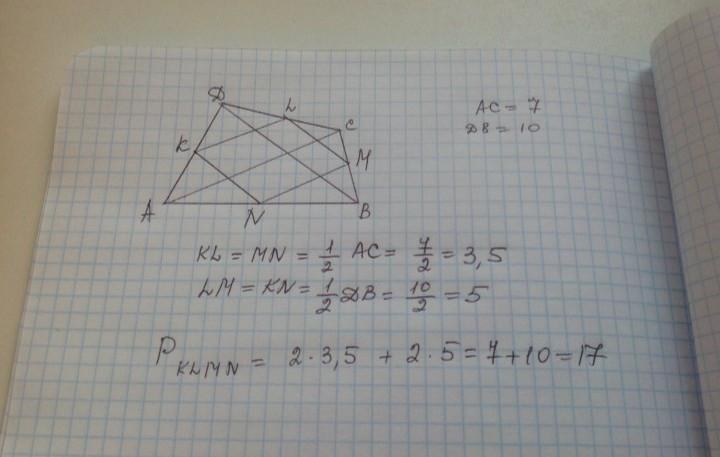 D
L
C
AC = 7
DB = 10
K
M
A
N
B
KL = MN = 1/2 AC = 7/2 = 3,5
LM = KN = 1/2 DB = 10/2 = 5
P KLMN = 2·3,5 + 2·5 = 7+10 = 17